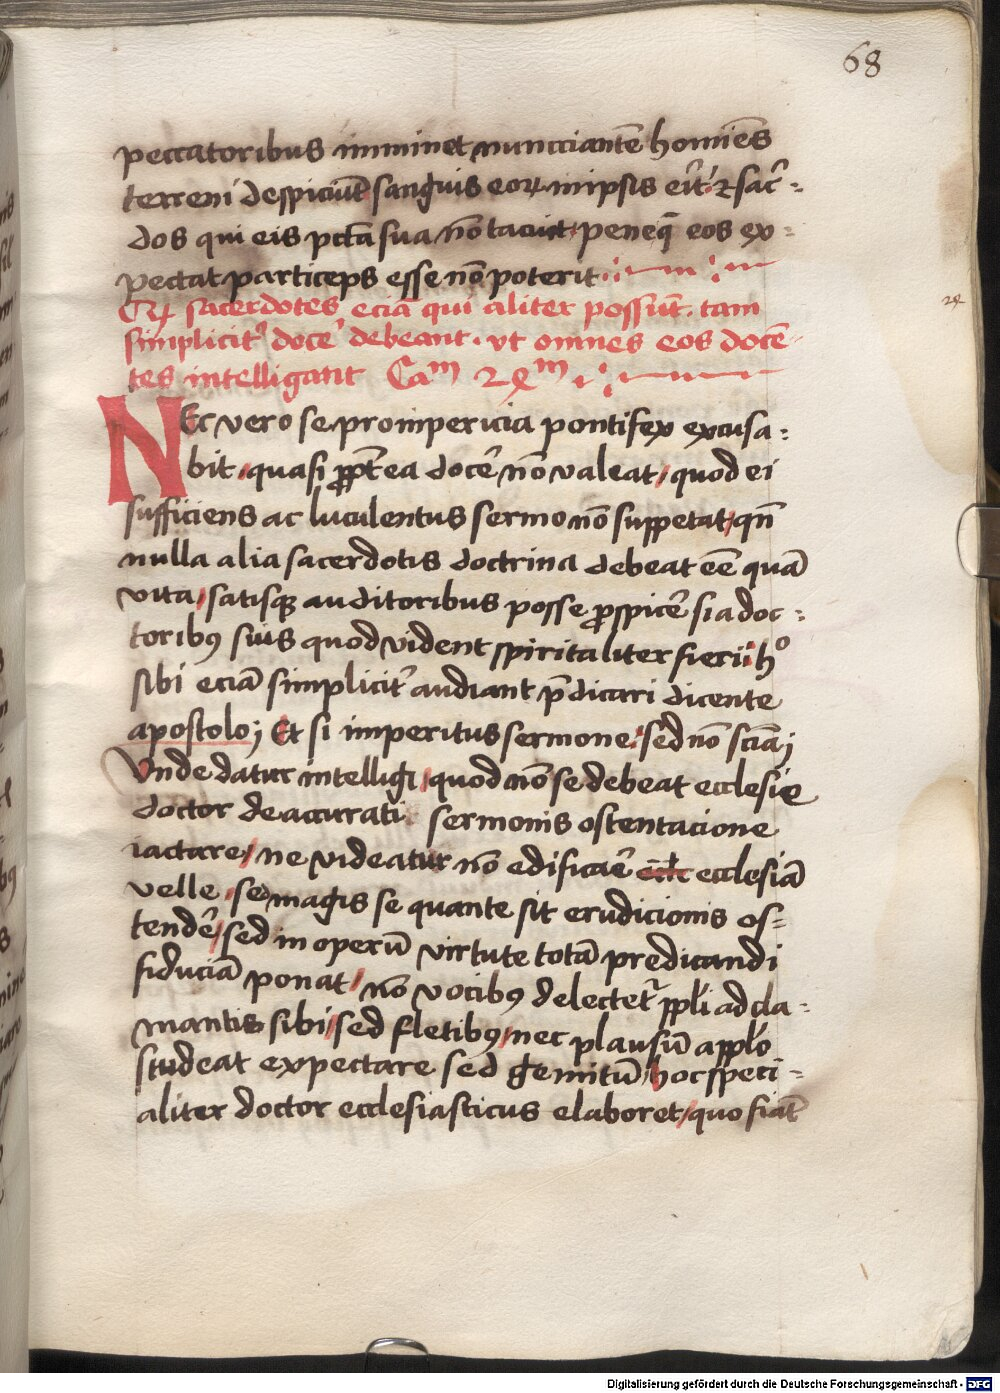 68
peccatoribus imminet nuncciantē homiēs
terreni despiciūt sanguis eoꝝ in ipsis eīt · ⁊ sac̄-
dos qui eis pctā sua nō tacuit peneq̄ eos ex-
pectat particeps esse nō poterit
Qꝝ sacerdotes eciā qui aliter possūt . tam
simplicit᾽ docē debeant . vt omnes eos docē-
tes intelligant Caᵐ 24ᵐ
24
NEc vero se pro impericia pontifex excusa-
bit / quasi ꝓpt̄ea docē nō valeat / quod ei
sufficiens ac luculentus sermo nō suppetat / qn̄
nulla alia sacerdotis doctrina debeat eē̄ quā
vita / satisqꝫ auditoribus posse ꝓspicē si a doc-
toribꝯ suis quod vident spiritaliter fieri / hᵒ
sibi eciā simplicit᾽ audiant p̄dicari dicente
apostolo ; Et si imperitus sermone / sed nō sciā ;
Vnde datur intelligi / quod nō se debeat ecclesie
doctor de accurati sermonis ostentacione
iactare / ne videatur nō edificāē ecclesiā
velle / se magis se quante sit erudicionis os-
tendē / sed in operū virtute totā predicandi
fiduciā ponat / nō vocibꝯ delectet᾽ ppl̄i ad cla-
mantis sibi / sed fletibꝯ / nec plausū a ppl̄o
studeat expectare sed gemitū / hoc speci-
aliter doctor ecclesiasticus elaboret / quo fiāt
Digitalisierung gefördert durch die Deutsche Forschungsgemeinschaft - DFG